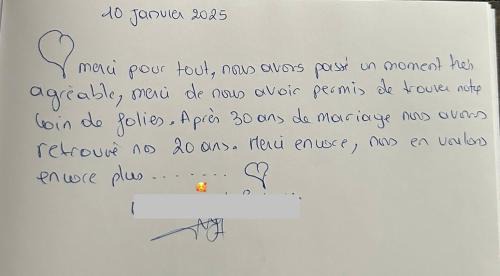 10 Janvier 2025
merci pour tout, nous avons passé un moment très
agréable, merci de nous avoir permis de trouver notre
coin de folies. Après 30 ans de mariage nous avons
retrouvé nos 20 ans. Merci encore, nous en voulons
encore plus .......